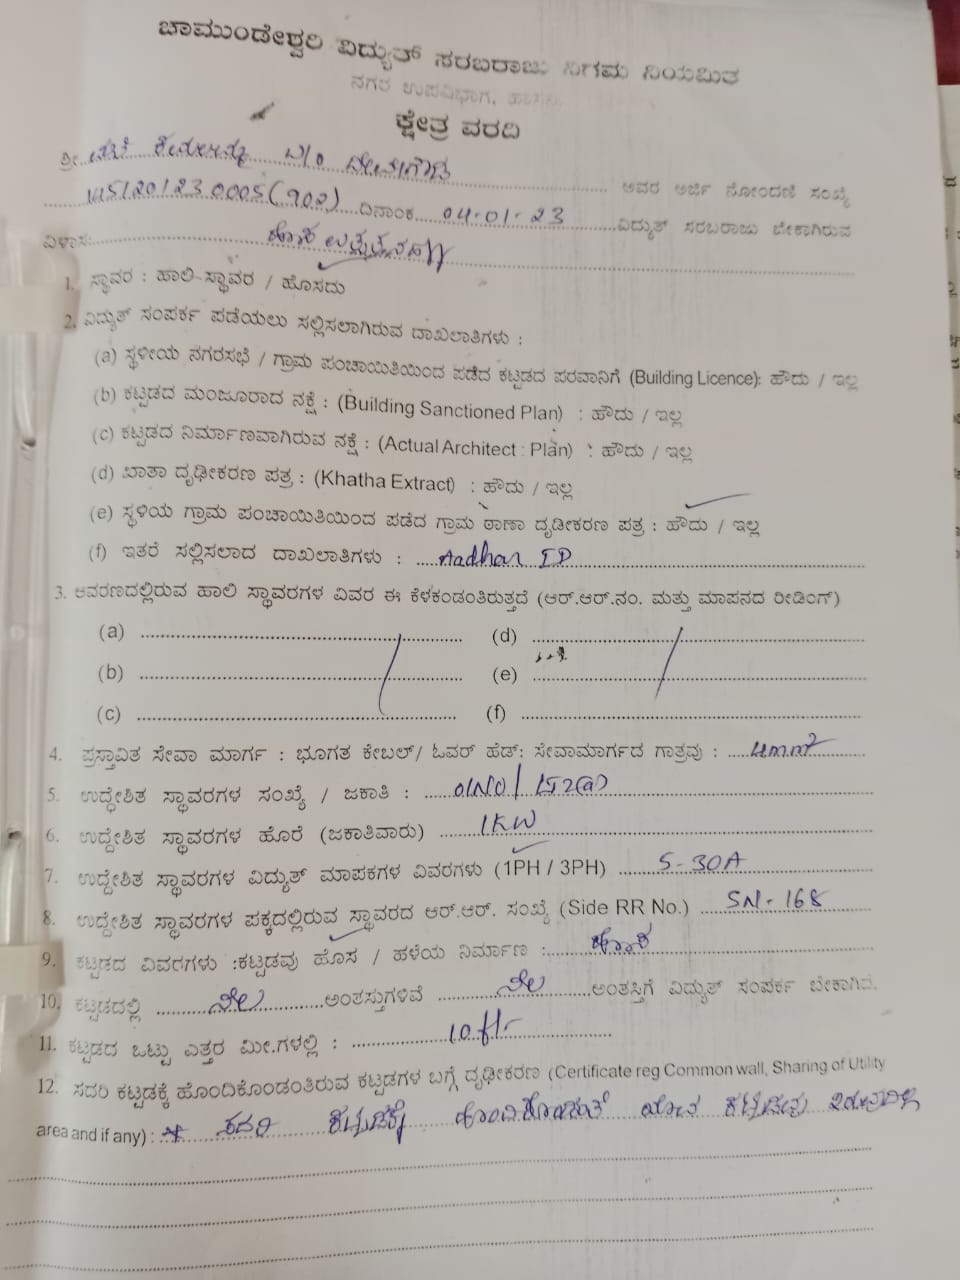 ಚಾಮುಂಡೇಶ್ವರಿ ವಿದ್ಯುತ್ ಸರಬರಾಜು ನಿಗಮ ನಿಯಮಿತ
ನಗರ ಉಪವಿಭಾಗ, ಹಾಸನ.
ಕ್ಷೇತ್ರ ವರದಿ
ಶ್ರೀ. W/o ದೇವೇಗೌಡ ಅವರ ಅರ್ಜಿ ನೋಂದಣಿ ಸಂಖ್ಯೆ
ದಿನಾಂಕ 04-01-23 ವಿದ್ಯುತ್ ಸರಬರಾಜು ಬೇಕಾಗಿರುವ
ವಿಳಾಸ: ಹೊಸ
1. ಸ್ಥಾವರ : ಹಾಲಿ-ಸ್ಥಾವರ / ಹೊಸದು
2. ವಿದ್ಯುತ್ ಸಂಪರ್ಕ ಪಡೆಯಲು ಸಲ್ಲಿಸಲಾಗಿರುವ ದಾಖಲಾತಿಗಳು :
(a) ಸ್ಥಳೀಯ ನಗರಸಭೆ / ಗ್ರಾಮ ಪಂಚಾಯಿತಿಯಿಂದ ಪಡೆದ ಕಟ್ಟಡದ ಪರವಾನಿಗೆ (Building Licence): ಹೌದು / ಇಲ್ಲ
(b) ಕಟ್ಟಡದ ಮಂಜೂರಾದ ನಕ್ಷೆ : (Building Sanctioned Plan) : ಹೌದು / ಇಲ್ಲ
(c) ಕಟ್ಟಡದ ನಿರ್ಮಾಣವಾಗಿರುವ ನಕ್ಷೆ : (Actual Architect : Plan) : ಹೌದು / ಇಲ್ಲ
(d) ಖಾತಾ ದೃಢೀಕರಣ ಪತ್ರ : (Khatha Extract) : ಹೌದು / ಇಲ್ಲ
(e) ಸ್ಥಳಿಯ ಗ್ರಾಮ ಪಂಚಾಯಿತಿಯಿಂದ ಪಡೆದ ಗ್ರಾಮ ಠಾಣಾ ದೃಡೀಕರಣ ಪತ್ರ : ಹೌದು / ಇಲ್ಲ
(f) ಇತರೆ ಸಲ್ಲಿಸಲಾದ ದಾಖಲಾತಿಗಳು : Aadhar ID
3. ಆವರಣದಲ್ಲಿರುವ ಹಾಲಿ ಸ್ಥಾವರಗಳ ವಿವರ ಈ ಕೆಳಕಂಡಂತಿರುತ್ತದೆ (ಆರ್.ಆರ್.ನಂ. ಮತ್ತು ಮಾಪನದ ರೀಡಿಂಗ್)
(a) (d)
(b) (e)
(c) (f)
4. ಪ್ರಸ್ತಾವಿತ ಸೇವಾ ಮಾರ್ಗ : ಭೂಗತ ಕೇಬಲ್/ ಓವರ್ ಹೆಡ್: ಸೇವಾಮಾರ್ಗದ ಗಾತ್ರವು : 4mm²
5. ಉದ್ದೇಶಿತ ಸ್ಥಾವರಗಳ ಸಂಖ್ಯೆ / ಜಕಾತಿ : 01NO / LT2(a)
6. ಉದ್ದೇಶಿತ ಸ್ಥಾವರಗಳ ಹೊರೆ (ಜಕಾತಿವಾರು) 1KW
7. ಉದ್ದೇಶಿತ ಸ್ಥಾವರಗಳ ವಿದ್ಯುತ್ ಮಾಪಕಗಳ ವಿವರಗಳು (1PH / 3PH) 5-30A
8. ಉದ್ದೇಶಿತ ಸ್ಥಾವರಗಳ ಪಕ್ಕದಲ್ಲಿರುವ ಸ್ಥಾವರದ ಆರ್.ಆರ್. ಸಂಖ್ಯೆ (Side RR No.) SN-168
9. ಕಟ್ಟಡದ ವಿವರಗಳು :ಕಟ್ಟಡವು ಹೊಸ / ಹಳೆಯ ನಿರ್ಮಾಣ : ಹೊಸ
10. ಕಟ್ಟಡದಲ್ಲಿ ನೆಲ ಅಂತಸ್ತುಗಳಿವೆ ನೆಲ ಅಂತಸ್ತಿಗೆ ವಿದ್ಯುತ್ ಸಂಪರ್ಕ ಬೇಕಾಗಿದೆ.
11. ಕಟ್ಟಡದ ಒಟ್ಟು ಎತ್ತರ ಮೀ.ಗಳಲ್ಲಿ : 10 ft-
12. ಸದರಿ ಕಟ್ಟಡಕ್ಕೆ ಹೊಂದಿಕೊಂಡಂತಿರುವ ಕಟ್ಟಡಗಳ ಬಗ್ಗೆ ದೃಢೀಕರಣ (Certificate reg Common wall, Sharing of Utility
area and if any) : ಸದರಿ ಕಟ್ಟಡಕ್ಕೆ ಹೊಂದಿಕೊಂಡಂತೆ ಯಾವ ಕಟ್ಟಡವು ಇರುವುದಿಲ್ಲ